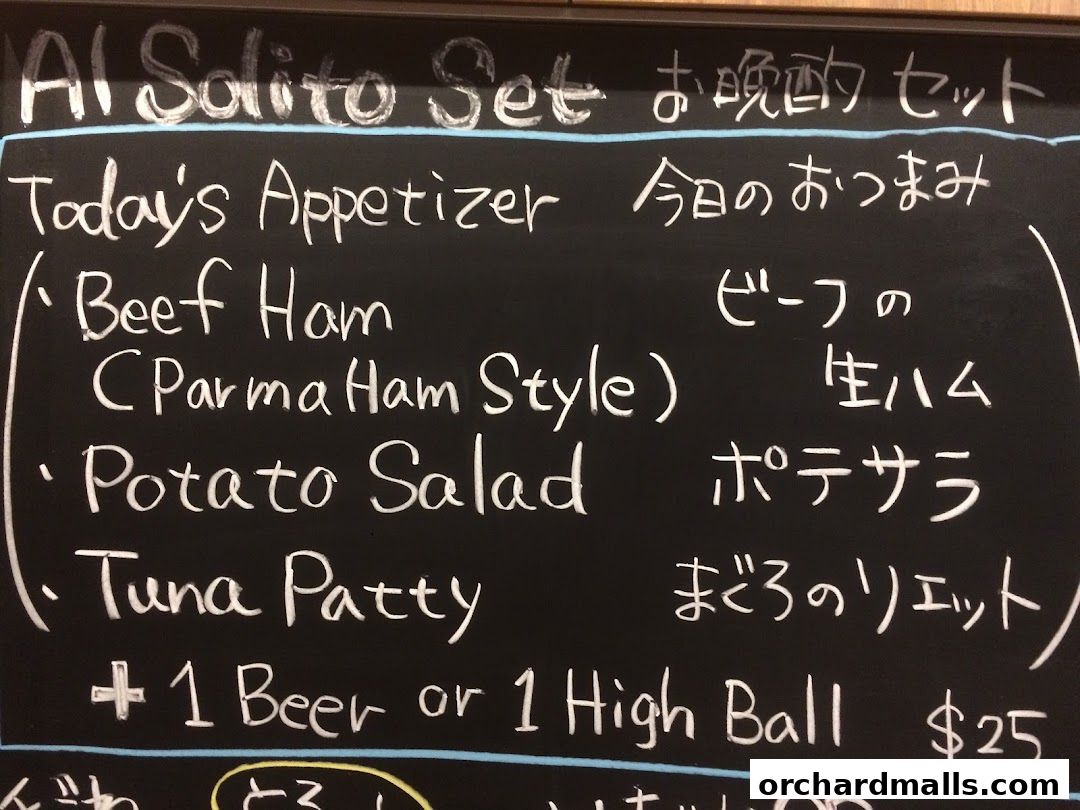 Al Solito Set お晩酌セット
Today's Appetizer 今日のおつまみ
・Beef Ham ビーフの
(Parma Ham Style) 生ハム
・Potato Salad ポテサラ
・Tuna Patty まぐろのリエット
+ 1 Beer or 1 High Ball $25
orchardmalls.com